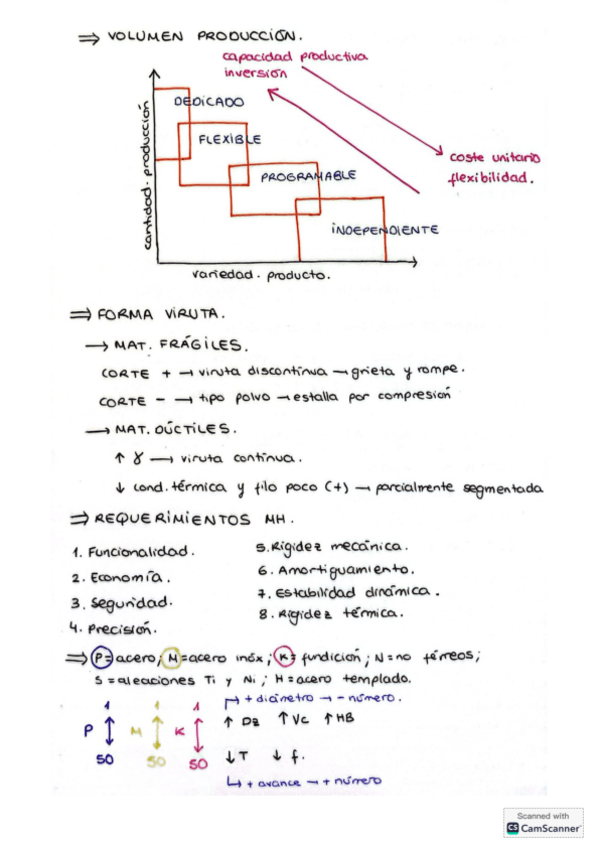 ⇒ VOLUMEN PRODUCCIÓN.
capacidad productiva
inversión
DEDICADO
FLEXIBLE
PROGRAMABLE
INDEPENDIENTE
coste unitario
flexibilidad.
cantidad. producción
variedad. producto.
⇒ FORMA VIRUTA.
→ MAT. FRÁGILES.
CORTE + → viruta discontinua → grieta y rompe.
CORTE - → tipo polvo → estalla por compresión
→ MAT. DÚCTILES.
↑ γ → viruta continua.
↓ cond. térmica y filo poco (+) → parcialmente segmentada
⇒ REQUERIMIENTOS MH.
1. Funcionalidad.
2. Economía.
3. Seguridad.
4. Precisión.
5. Rigidez mecánica.
6. Amortiguamiento.
7. Estabilidad dinámica.
8. Rigidez térmica.
⇒ P = acero; M = acero inóx; K = fundición; N = no férreos;
S = aleaciones Ti y Ni; H = acero templado.
1 1 1
P M K
50 50 50
↱ + diámetro → - número.
↑ Dz ↑ Vc ↑ HB
↓ T ↓ f.
↳ + avance → + número
Scanned with
CS CamScanner